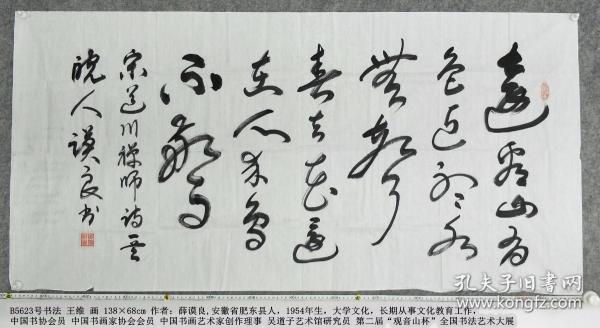 远看山有
色近听水
无声
春去花还
在人来鸟
不惊
宋道川禅师诗一
皖人谟良书
B5623号书法 王维 画 138×68cm 作者：薛谟良,安徽省肥东县人，1954年生，大学文化，长期从事文化教育工作，
中国书协会员 中国书画家协会会员 中国书画艺术家创作理事 吴道子艺术馆研究员 第二届“观音山杯”全国书法艺术大展
孔夫子旧书网